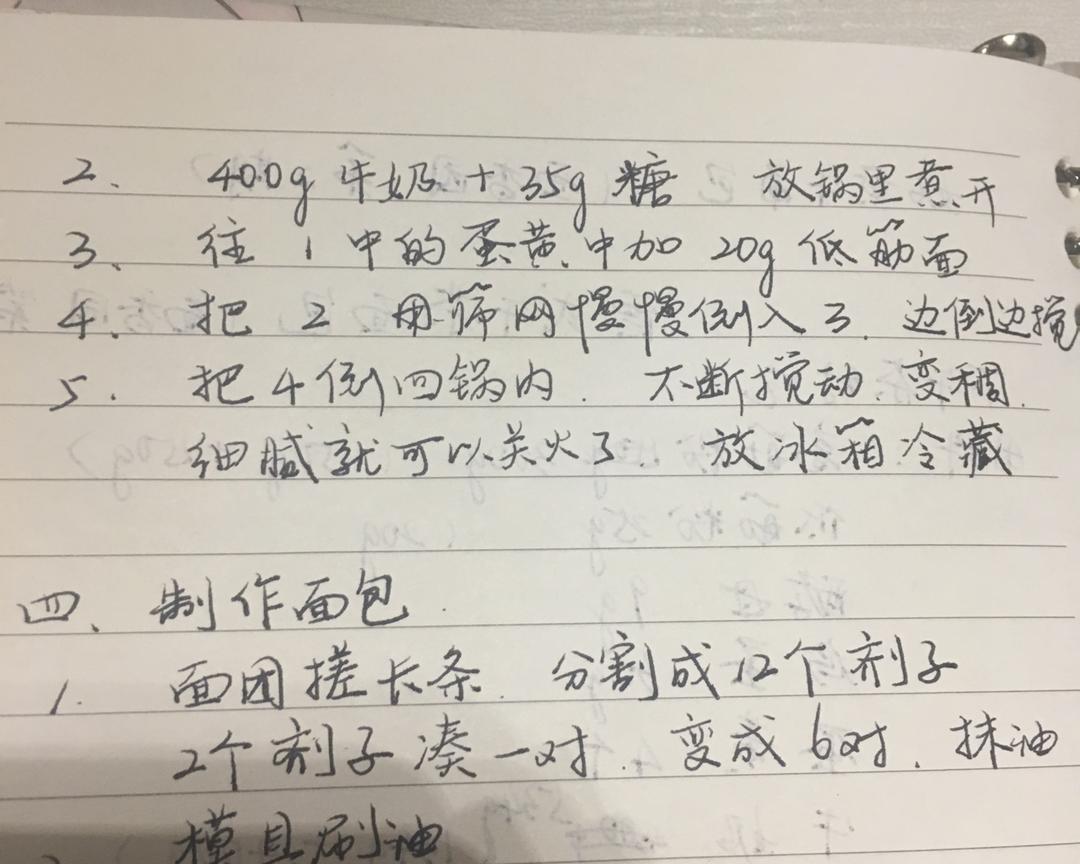 2、 400g 牛奶 + 35g 糖 放锅里煮开
3、 往 1 中的蛋黄中加 20g 低筋面
4. 把 2 用筛网慢慢倒入 3. 边倒边搅
5. 把 4 倒回锅内. 不断搅动. 变稠.
细腻就可以关火了. 放冰箱冷藏
四、制作面包.
1. 面团搓长条. 分割成12个剂子
2个剂子凑一对. 变成6对. 抹油
模具刷油